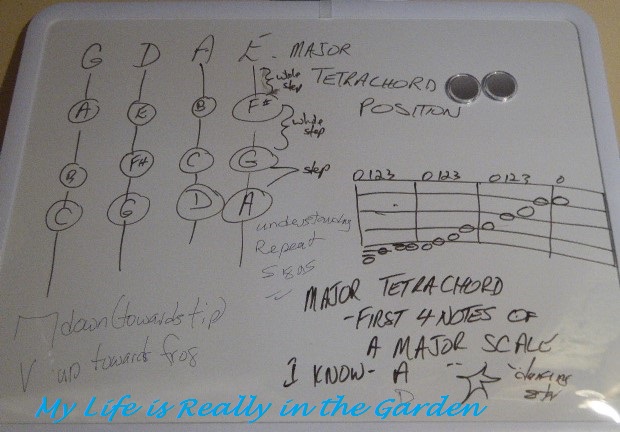 G D A E - MAJOR
TETRACHORD
POSITION
whole
step
A E B F#
whole
step
B F# C G
step
C G D A
0123 0123 0123 0
understanding
Repeat
signs
MAJOR TETRACHORD
-FIRST 4 NOTES OF
A MAJOR SCALE
I KNOW- A
D
dancing
⊓ down (towards tip)
V up towards frog
My Life is Really in the Garden